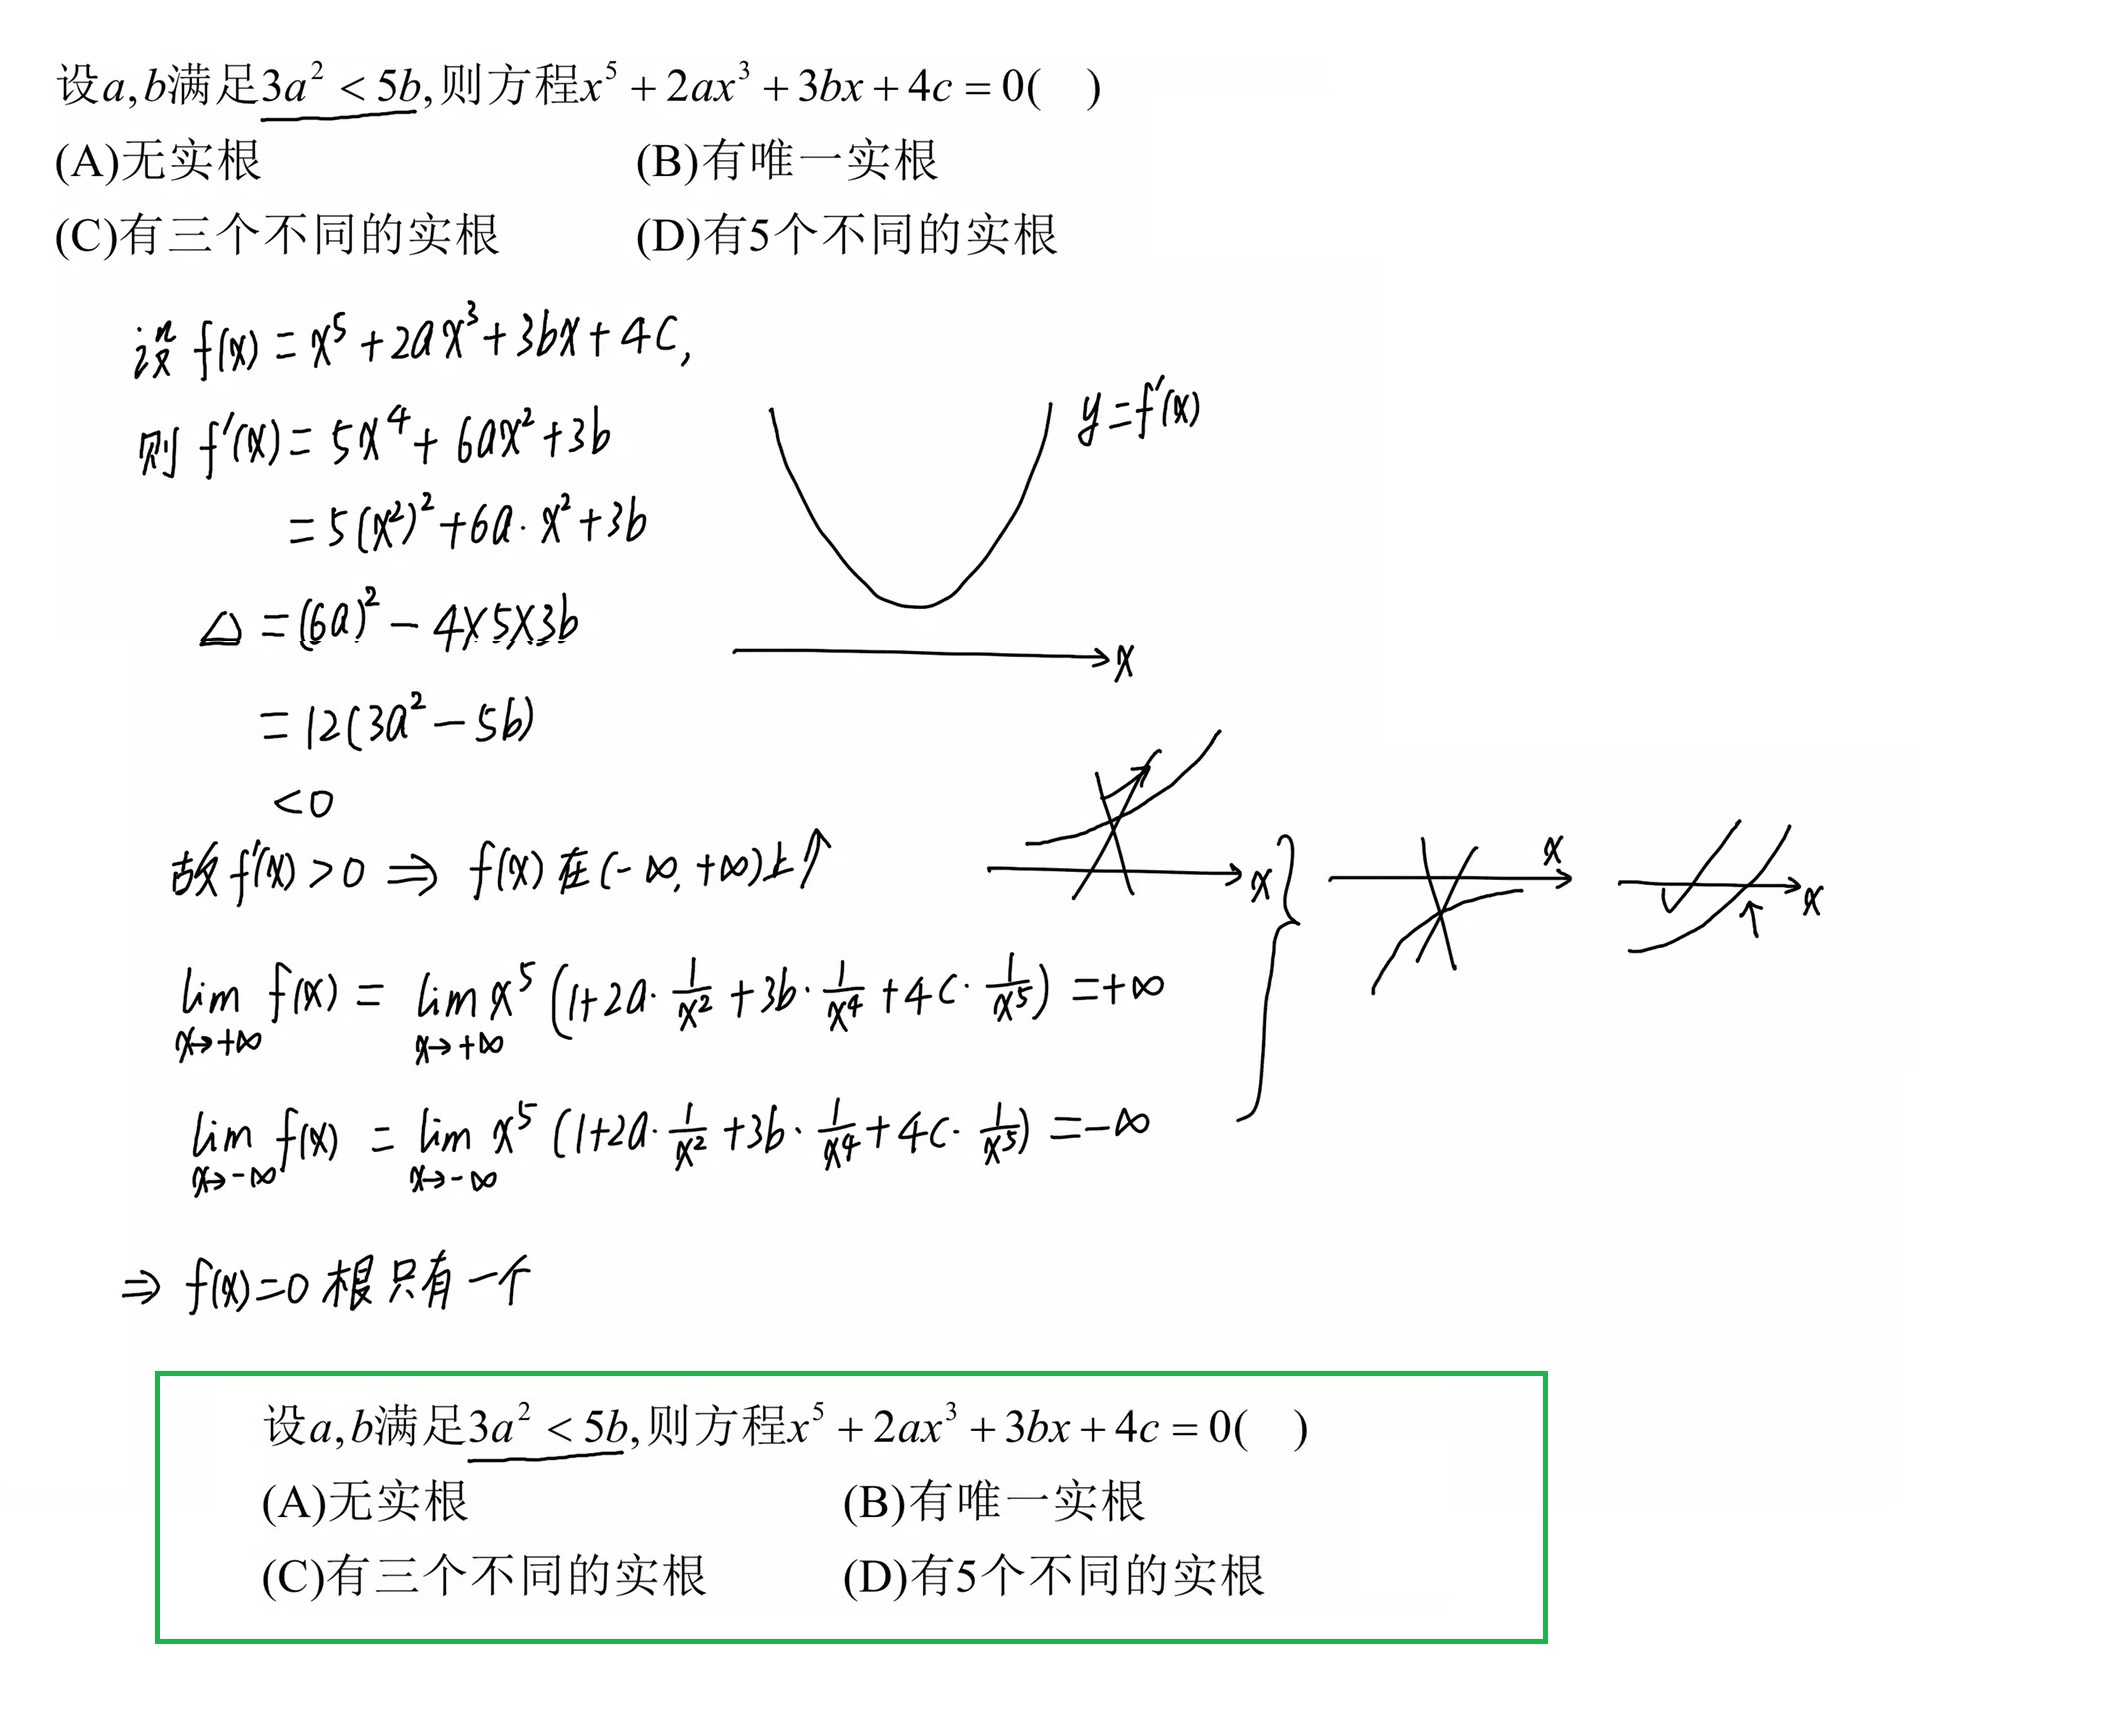 设a,b满足3a² < 5b,则方程x⁵ + 2ax³ + 3bx + 4c = 0( )
(A)无实根 (B)有唯一实根
(C)有三个不同的实根 (D)有5个不同的实根
设 f(x) = x⁵ + 2ax³ + 3bx + 4c,
则 f'(x) = 5x⁴ + 6ax² + 3b
= 5(x²)² + 6a · x² + 3b
y = f'(x)
△ = (6a)² − 4×5×3b
x
= 12(3a² − 5b)
< 0
故 f'(x) > 0 ⇒ f(x) 在 (−∞, +∞) 上↑
x
x
x
lim f(x) = lim x⁵ (1 + 2a · 1/x² + 3b · 1/x⁴ + 4c · 1/x⁵) = +∞
x→+∞ x→+∞
lim f(x) = lim x⁵ (1 + 2a · 1/x² + 3b · 1/x⁴ + 4c · 1/x⁵) = −∞
x→−∞ x→−∞
⇒ f(x) = 0 根只有一个
设a,b满足3a² < 5b,则方程x⁵ + 2ax³ + 3bx + 4c = 0( )
(A)无实根 (B)有唯一实根
(C)有三个不同的实根 (D)有5个不同的实根